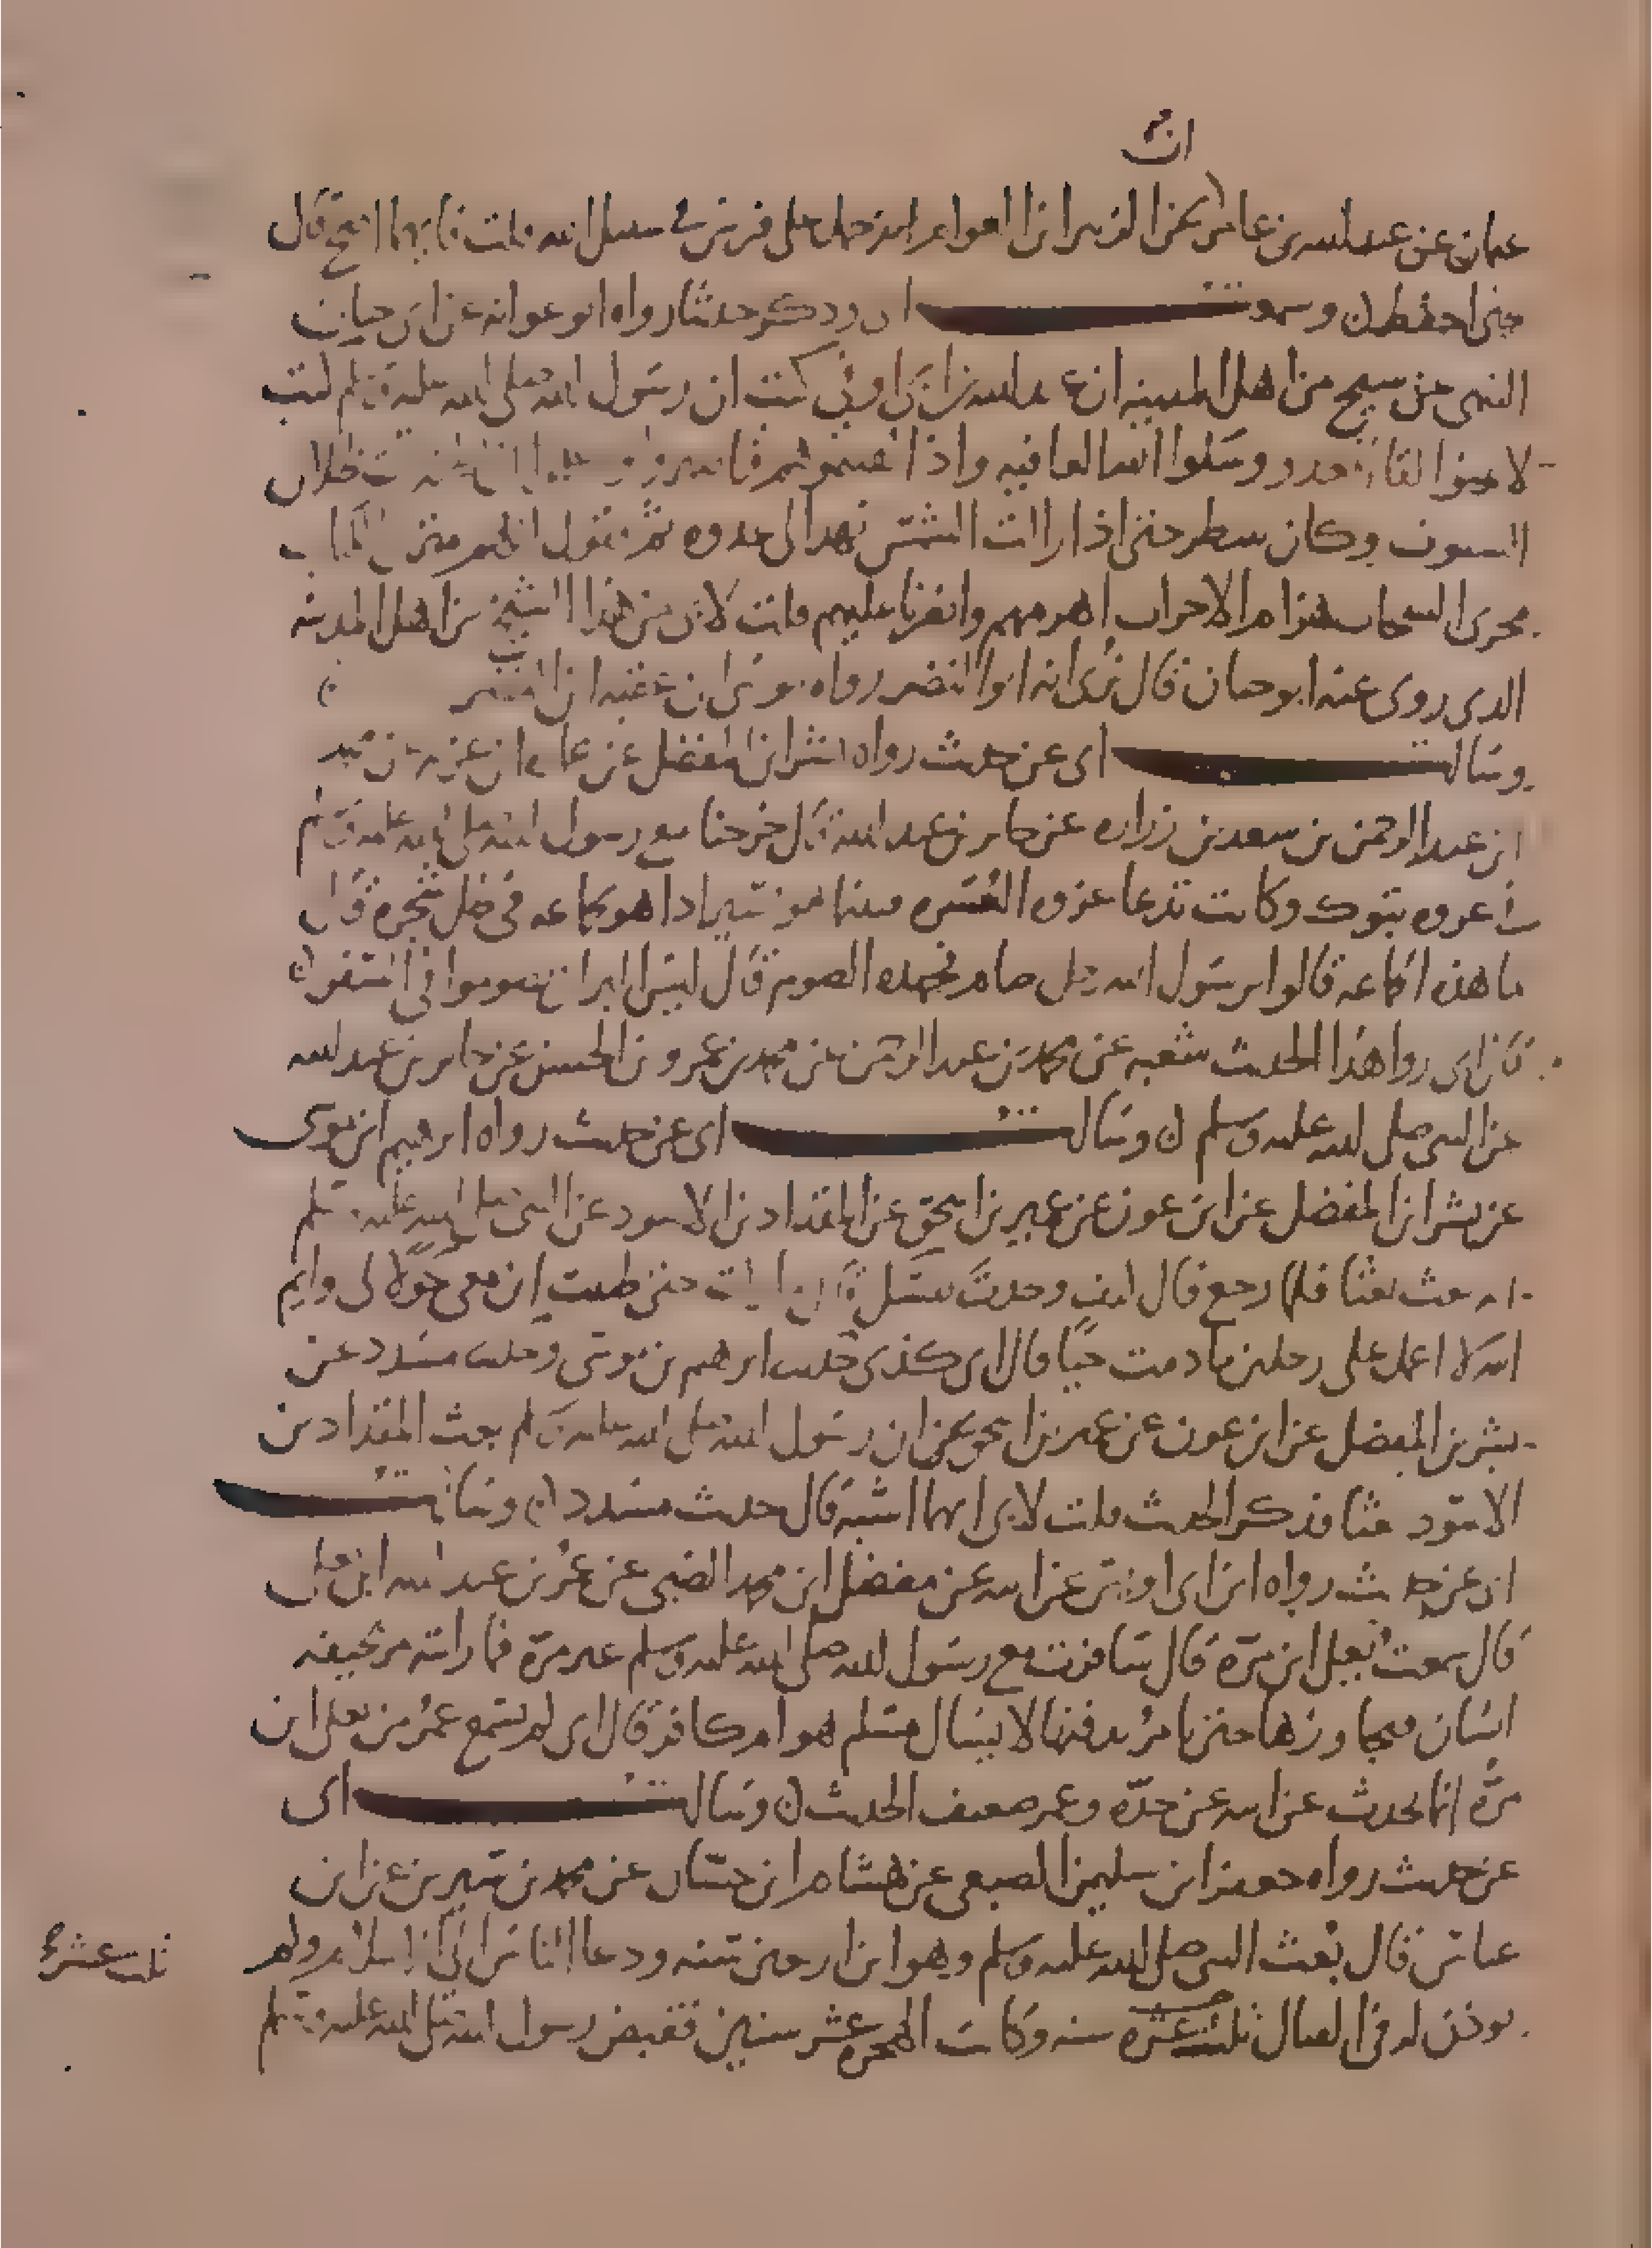 ان
عثمان عن عبد الله بن عامر عن الزبير ابن العوام انه حمل على فرس في سبيل الله قلت فايهما اصح قال
حتى احفظ وسمعت ابي وذكر حديثا رواه ابو عوانه عن ابي حيان
التيمي عن شيخ من اهل المدينه ان عبد الله بن ابي اوفى كتب ان رسول الله صلى الله عليه وسلم كتب
لا تمنوا لقا العدو وسلوا الله العافيه واذا لقيتموهم فاصبروا واعلموا ان الجنه تحت ظلال
السيوف وكان ينتظر حتى اذا زالت الشمس نهد الى عدوه ثم يقول اللهم منزل الكتاب
مجرى السحاب هزام الاحزاب اهزمهم وانصرنا عليهم قلت لابي من هذا الشيخ من اهل المدينه
الذي روى عنه ابو حيان قال نرى انه ابو النضر رواه موسى بن عقبه عن ابي النضر
وسالت ابي عن حديث رواه بشر ابن المفضل عن عن محمد
ابن عبد الرحمن بن سعد بن زراره عن جابر بن عبد الله قال خرجنا مع رسول الله صلى الله عليه وسلم
في غزوه تبوك وكانت تدعا غزوه العسره فبينما هو يسير اذا هو بجماعه في ظل شجره قال
ما هذه الجماعه قالوا يرسول الله رجل صام فجهده الصوم قال ليس البر ان تصوموا في السفر
قال ابي روا هذا الحديث شعبه عن محمد بن عبد الرحمن عن محمد بن عمرو بن الحسن عن جابر بن عبد الله
عن النبي صلى الله عليه وسلم وسالت ابي عن حديث رواه ابرهيم ابن موسى
عن بشر ابن المفضل عن ابن عون عن عمير بن اسحق عن المقداد بن الاسود عن النبي صلى الله عليه وسلم
انه بعث بعثا فلما رجع قال كيف وجدت نفسك قال ما زلت حتى ظننت ان معي خولا لي وايم
الله لا اعمل على رجلين ما دمت حيا قال ابي كذى حدثنا ابرهيم بن موسى وحدثنا مسدد عن
بشر بن المفضل عن ابن عون عن عمير بن اسحق ان رسول الله صلى الله عليه وسلم بعث المقداد بن
الاسود بعثا فذكر الحديث قلت لابي ايهما اشبه قال حديث مسدد وسالت
ابي عن حديث رواه ابن ابي اويس عن ابيه عن مفضل ابن محمد الضبي عن عمر بن عبد الله ابن يعلى
قال سمعت يعلى ابن مره قال سافرت مع رسول الله صلى الله عليه وسلم غير مره فما رايته مر بجيفه
انسان فيجاوزها حتى يامر بدفنها لا يسال مسلم هو ام كافر قال ابي لم يسمع عمر من يعلى ابن
مره انما يحدث عن ابيه عن جده وعمر ضعيف الحديث وسالت ابي
عن حديث رواه جعفر ابن سليمن الضبعي عن هشام ابن حسان عن محمد بن سيرين عن ابن
عباس قال بعث النبي صلى الله عليه وسلم وهو ابن اربعين سنه ودعا الناس الى الاسلام ولم
يوذن له في القتال ثلث عشره سنه وكانت الهجره عشر سنين فقبض رسول الله صلى الله عليه وسلم
ثلث عشره